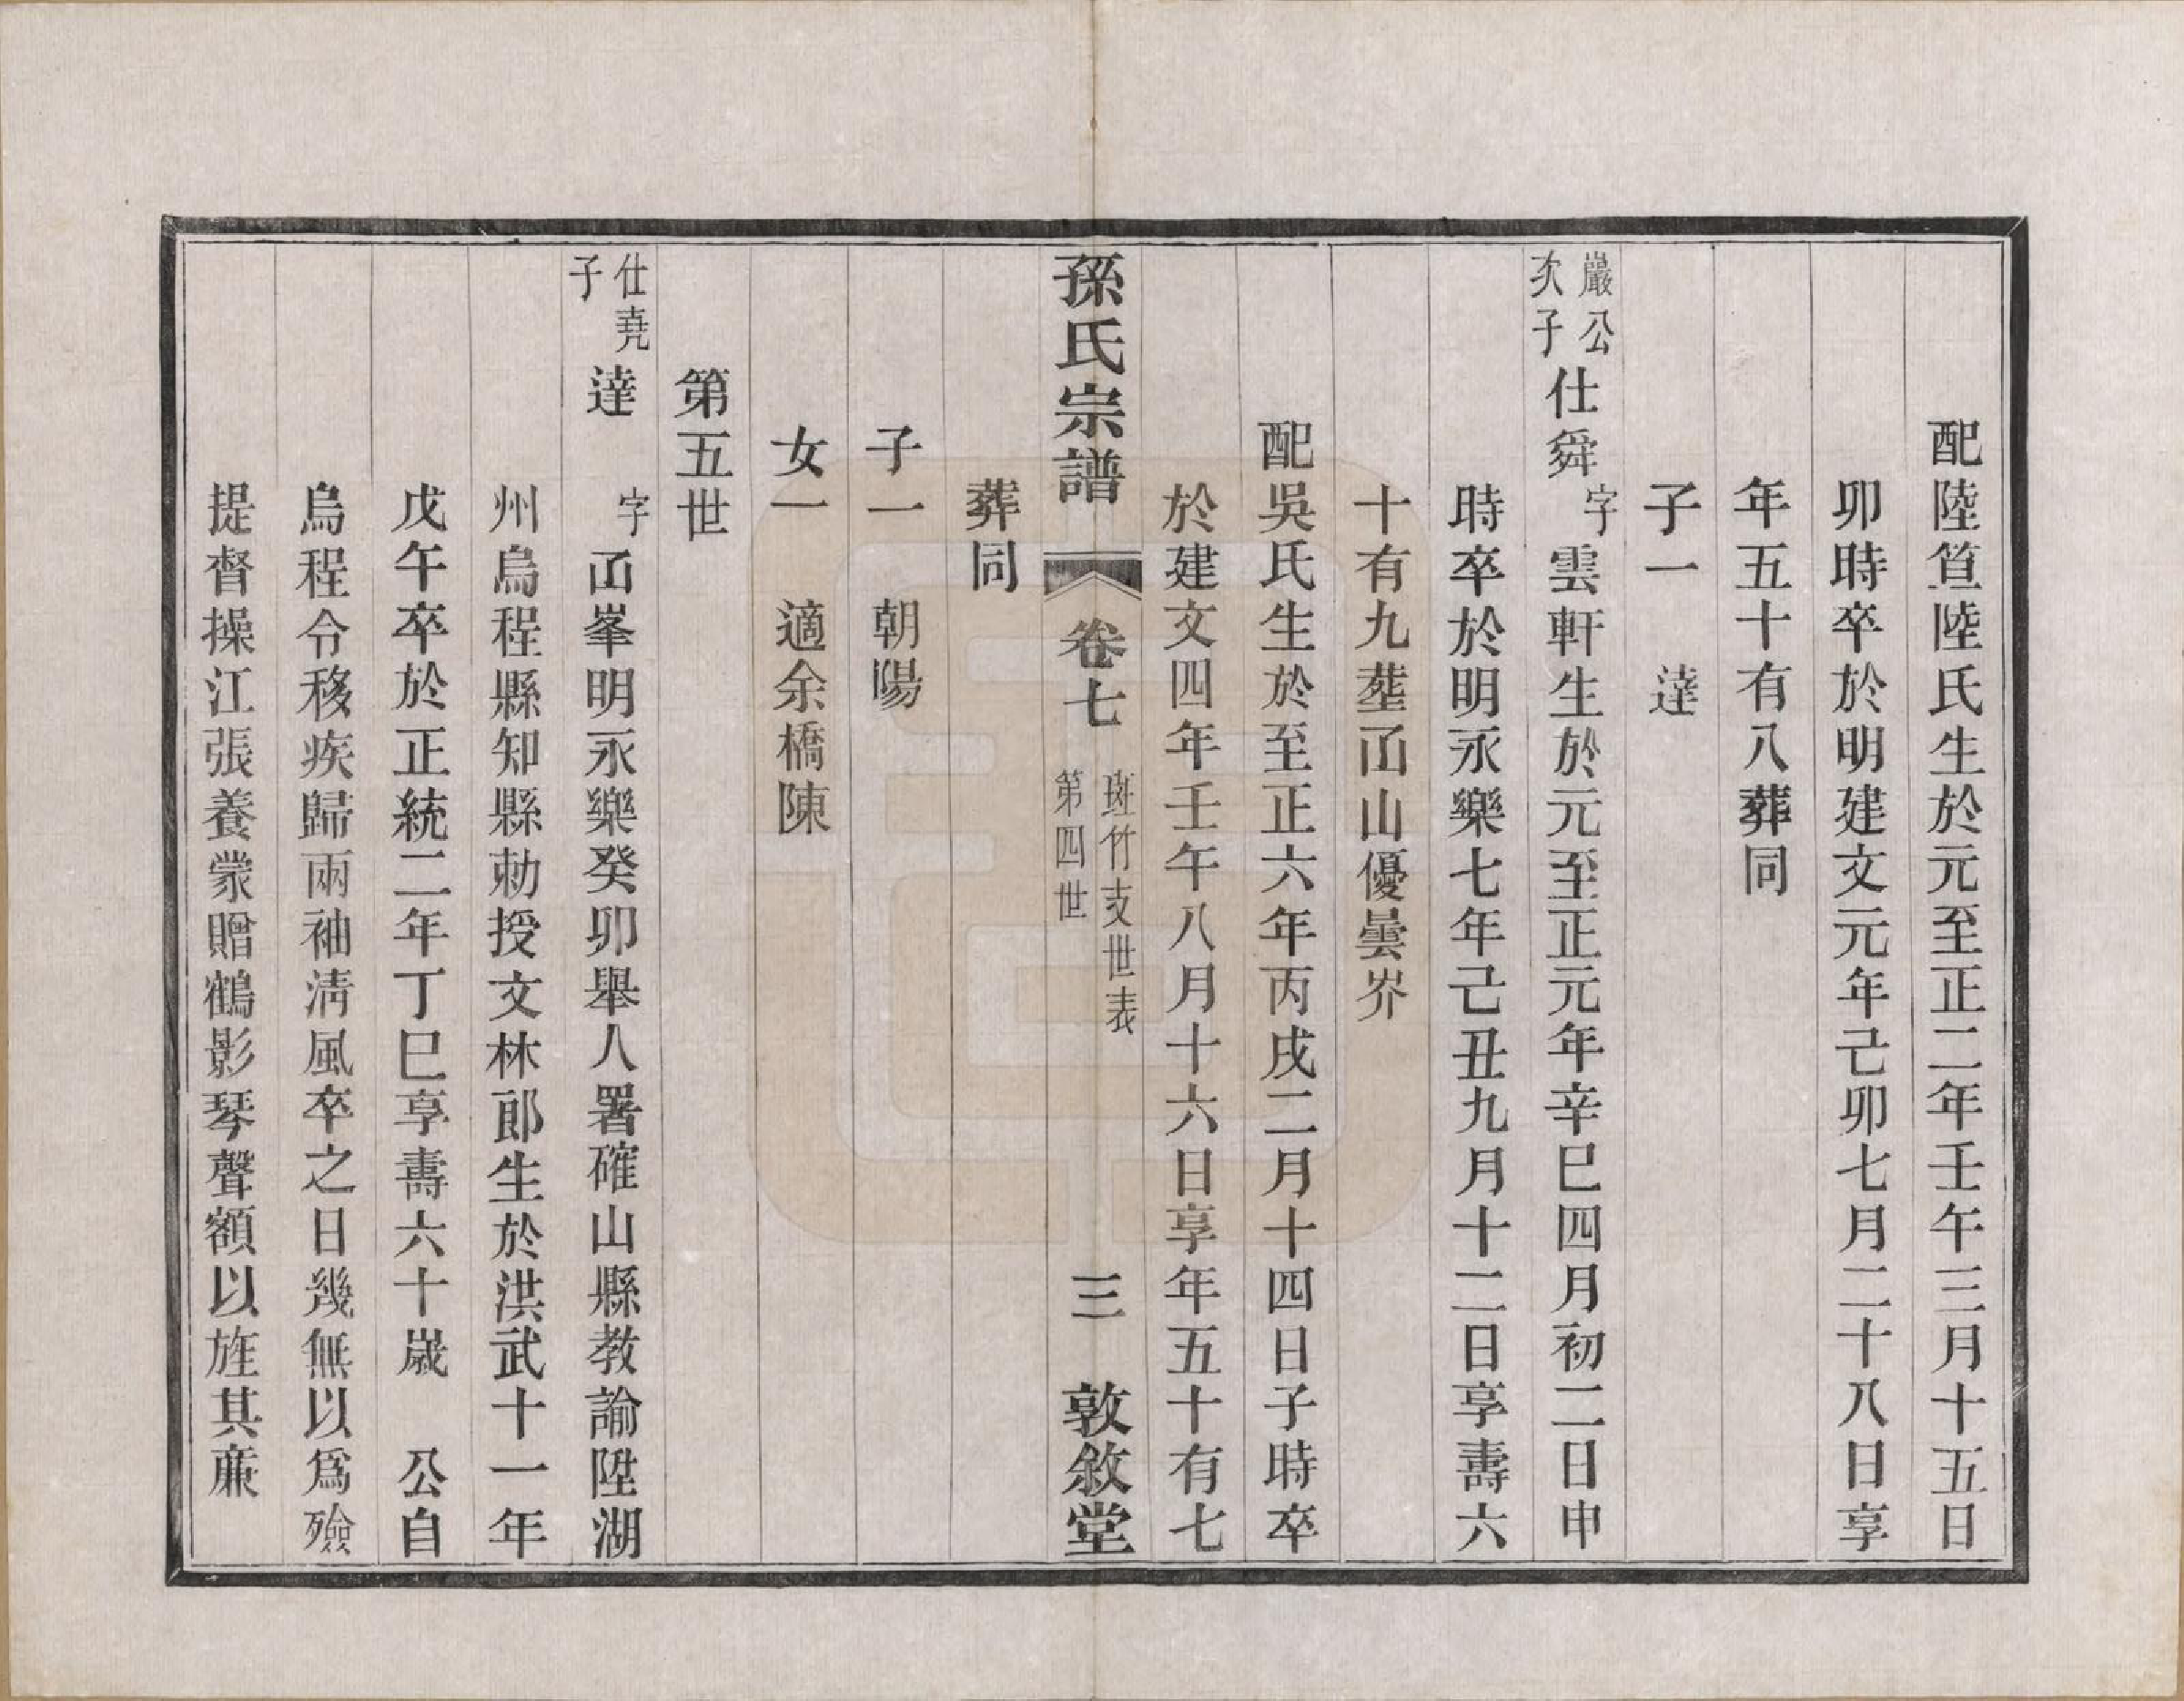 配陸笪陸氏生於元至正二年壬午三月十五日
卯時卒於明建文元年己卯七月二十八日享
年五十有八葬同
子一　達
巖公次子　仕舜　字雲軒生於元至正元年辛巳四月初二日申
時卒於明永樂七年己丑九月十二日享壽六
十有九塟凾山優曇岕
配吳氏生於至正六年丙戌二月十四日子時卒
於建文四年壬午八月十六日享年五十有七
孫氏宗譜　卷七　斑竹支世表　第四世　三　敦敘堂
葬同
子一　朝陽
女一　適余橋陳
第五世
仕堯子　達　字凾峯明永樂癸卯舉人署確山縣教諭陞湖
州烏程縣知縣勅授文林郎生於洪武十一年
戊午卒於正統二年丁巳享壽六十歲　公自
烏程令移疾歸兩袖淸風卒之日幾無以爲殮
提督操江張養蒙贈鶴影琴聲額以旌其亷